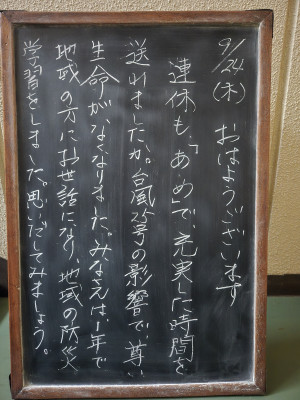 9/24(木) おはようございます
連休も、「あ・め」で、充実した時間を
送れましたか。台風25号の影響で、尊い
生命がなくなりました。みなさんは、1年で
地域の方にお世話になり、地域の防災
学習をしました。思いだしてみましょう。